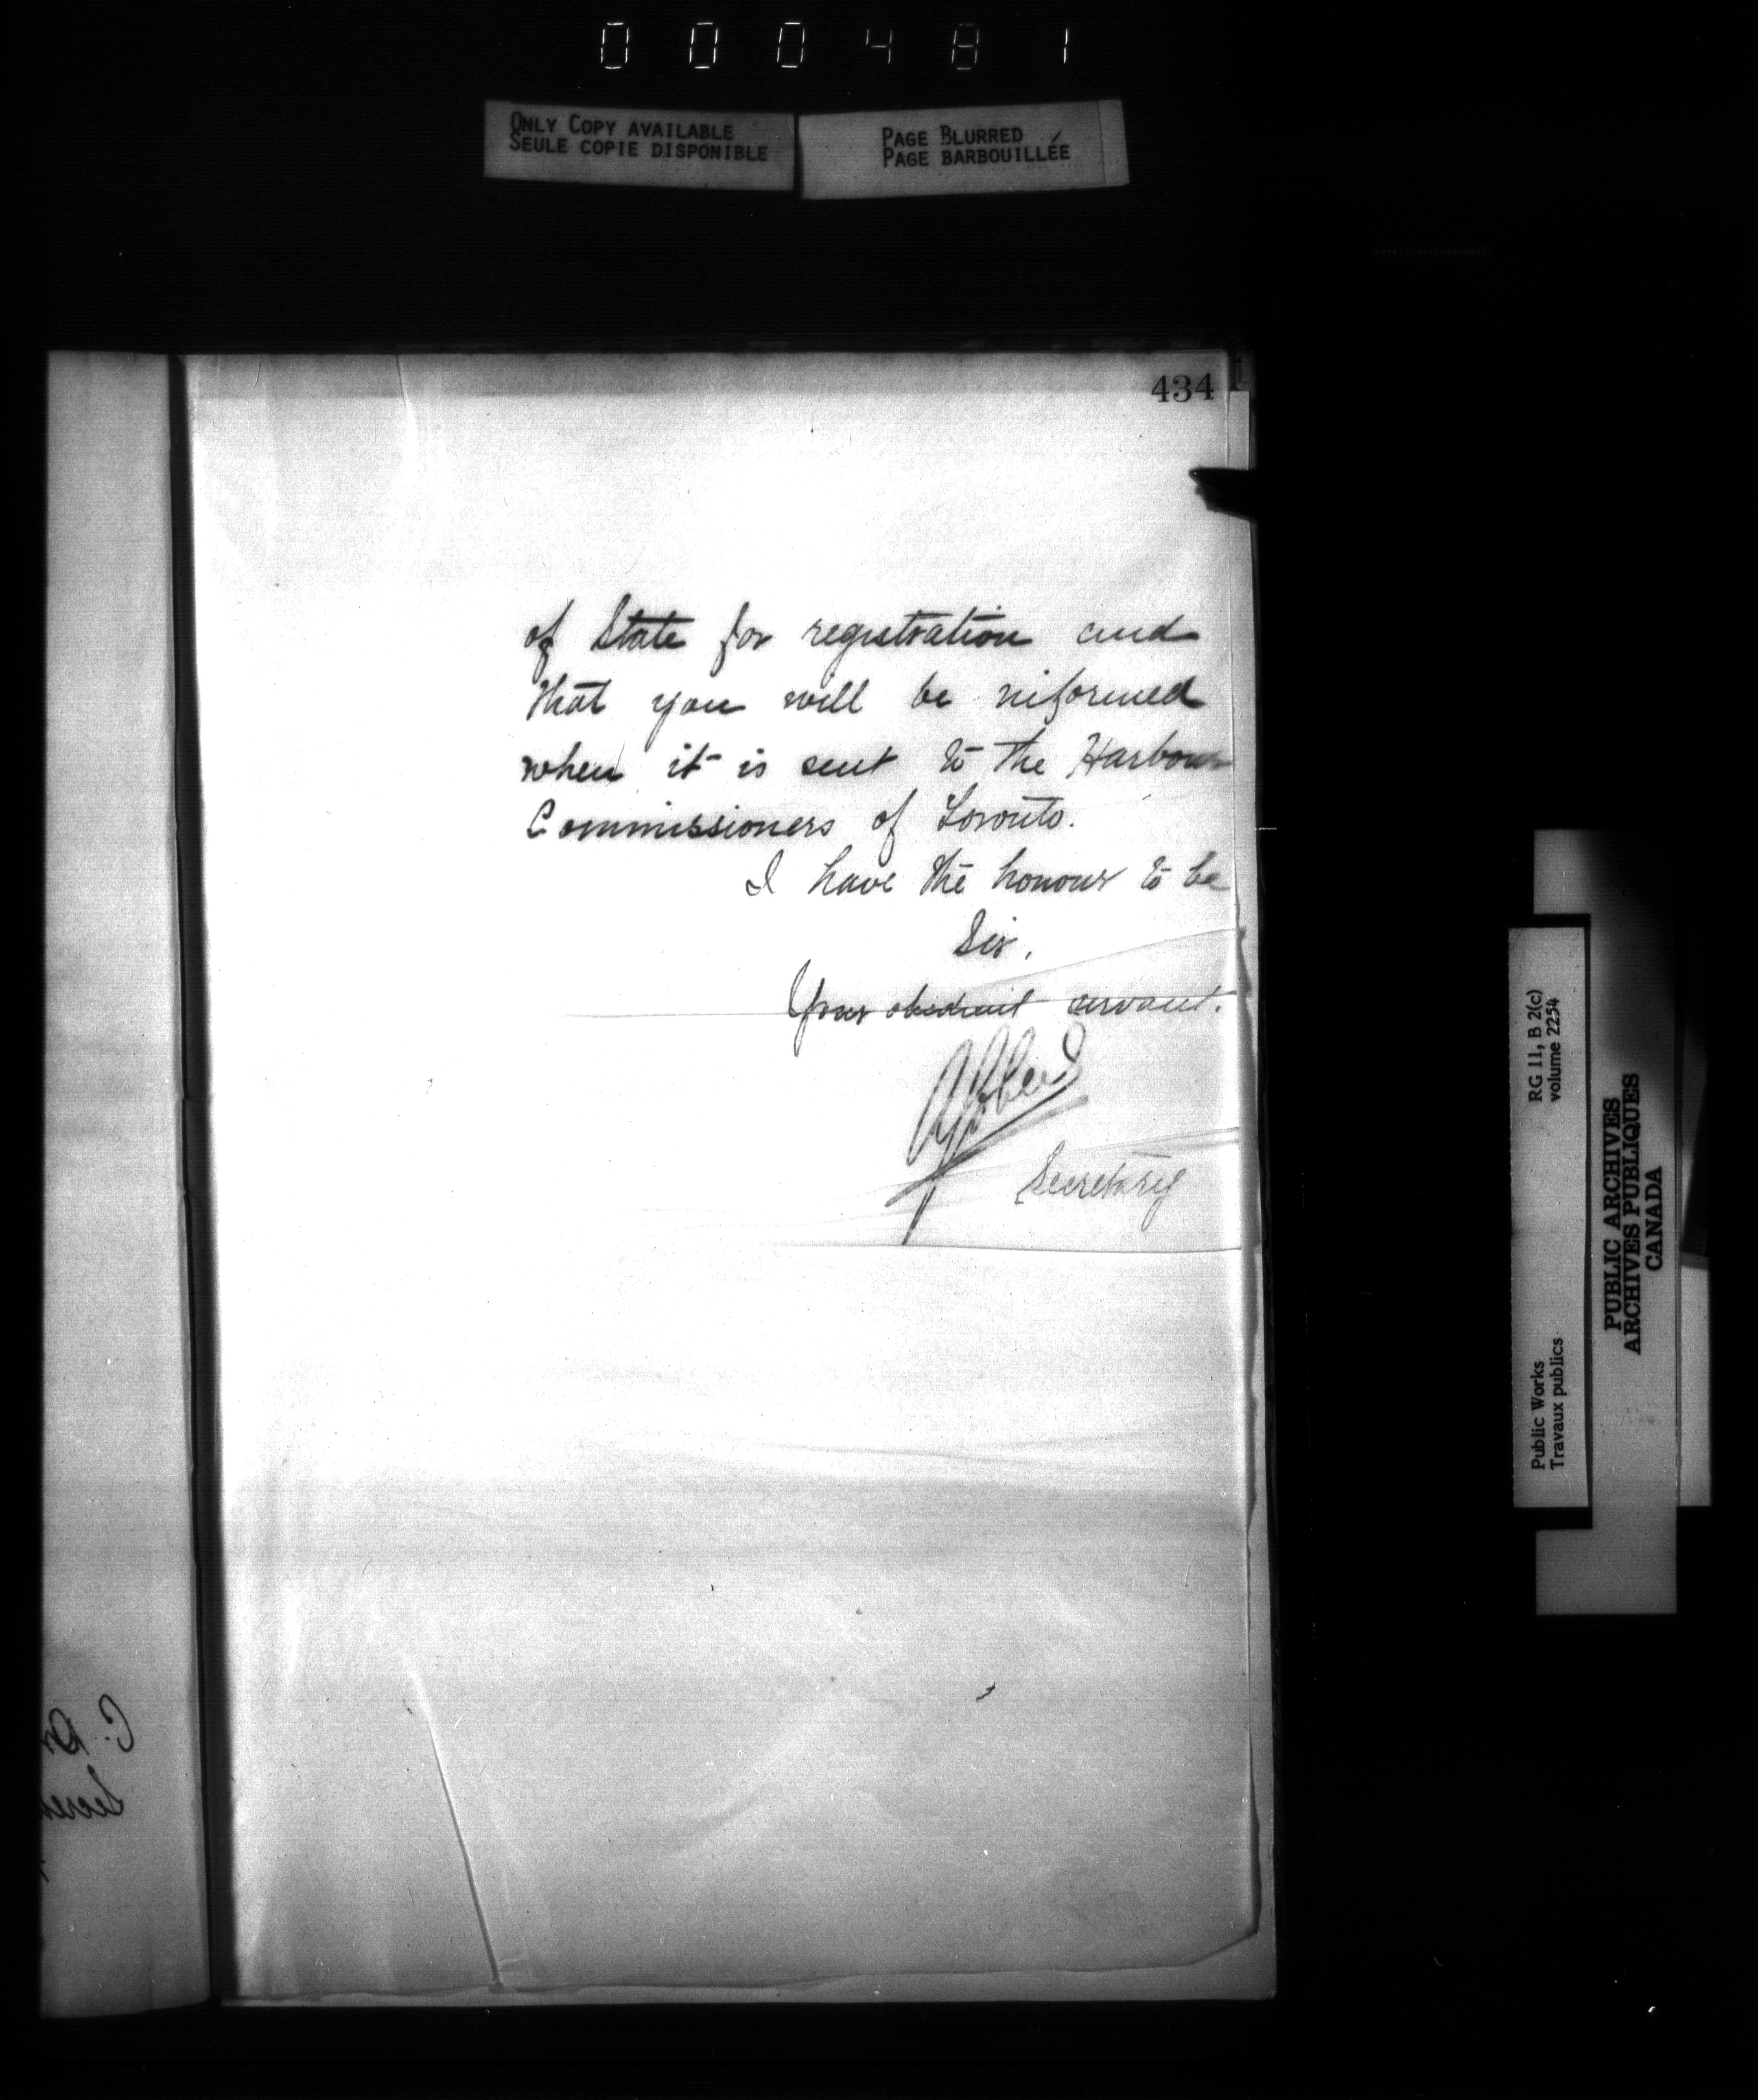 000481
ONLY COPY AVAILABLE
SEULE COPIE DISPONIBLE
PAGE BLURRED
PAGE BARBOUILLÉE
434
of State for registration and
that you will be informed
when it is sent to the Harbour
Commissioners of Toronto.
I have the honour to be
Sir,
Your obedient servant.
Secretary
RG 11, B 2(c)
volume 2254
Public Works
Travaux publics
PUBLIC ARCHIVES
ARCHIVES PUBLIQUES
CANADA